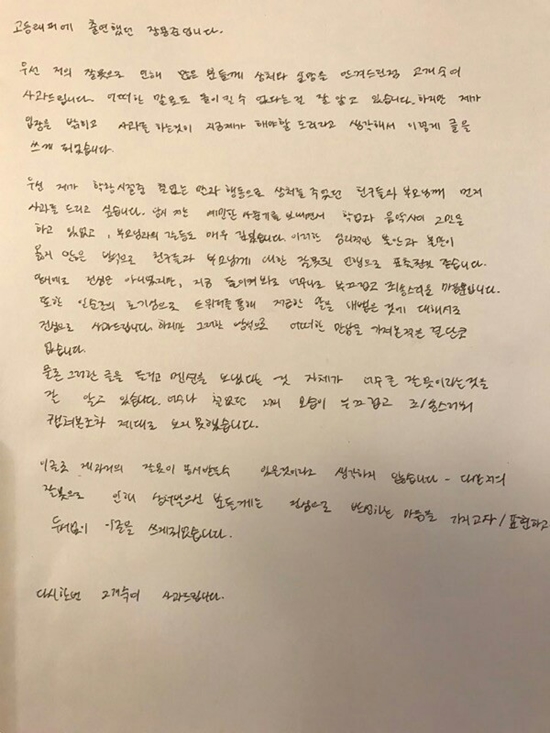 고등래퍼에 출연했던 장용준입니다.
우선 저의 잘못으로 인해 많은 분들께 상처와 실망을 안겨드린점 고개숙여
사과드립니다. 어떠한 말로도 용서될 수 없다는걸 잘 알고 있습니다. 하지만 제가
입장을 밝히고 사과를 하는것이 지금제가 해야할 도리라고 생각해서 이렇게 글을
쓰게 되었습니다.
우선 제가 학창시절중 철없는 말과 행동으로 상처를 주었던 친구들과 부모님께 먼저
사과를 드리고 싶습니다. 당시 저는 예민한 사춘기를 보내면서 학업과 음악사이 고민을
하고 있었고, 부모님과의 갈등도 매우 깊었습니다. 이러한 심리적인 불안과 불만이
옳지 않은 방식으로 친구들과 부모님께 대한 잘못된 언행으로 표출된것 같습니다.
당시에도 진심은 아니었지만, 지금 돌이켜봐도 너무나도 부끄럽고 죄송스러운 마음뿐입니다.
또한 일순간의 호기심으로 트위터를 통해 저급한 말을 내뱉은 것에 대해서도
진심으로 사과드립니다. 하지만 그러한 방식으로 어떠한 만남을 가져본적은 결단코
없습니다.
물론 그러한 글을 올리고 멘션을 보냈다는 것 자체가 너무 큰 잘못이라는것을
잘 알고 있습니다. 너무나 철없던 저의 모습이 부끄럽고 죄송스러워
캡쳐본조차 제대로 보지 못했습니다.
이글로 제과거의 잘못이 용서받을수 있을것이라고 생각하지 않습니다 - 다만 저의
잘못으로 인해 상처받으신 분들께는 진심으로 반성하는 마음을 가지고자/표현하고
두서없이 이글을 쓰게되었습니다.
다시한번 고개숙여 사과드립니다.